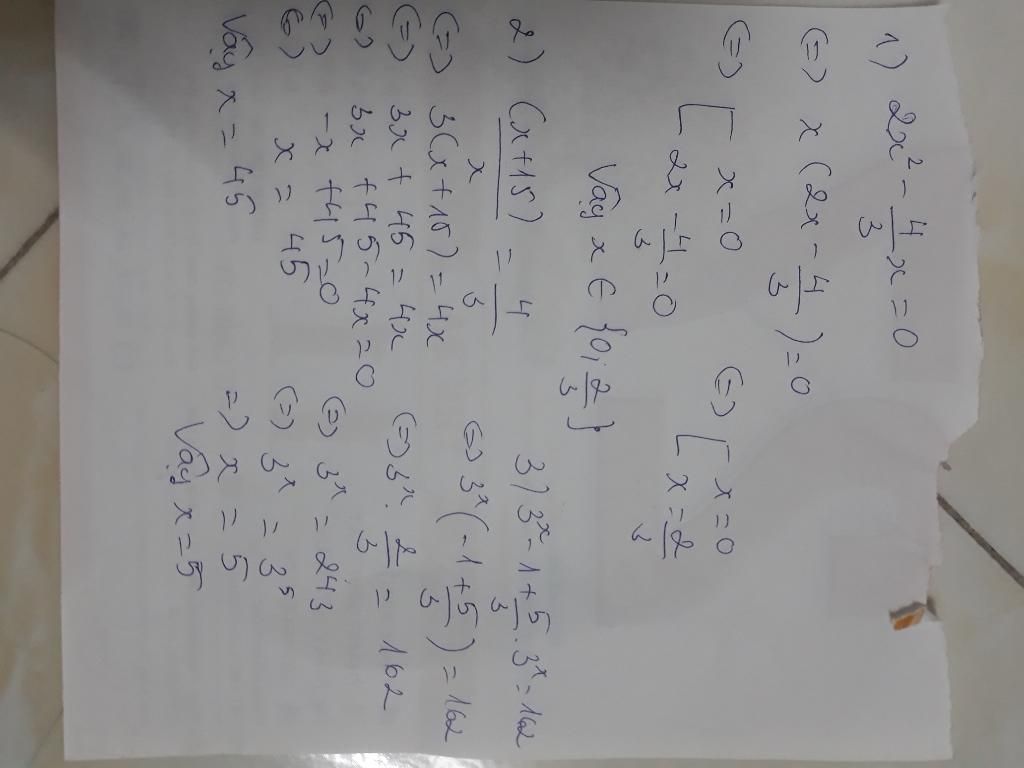 1) 2x² - 4/3 x = 0
(=) x (2x - 4/3) = 0
(=) [ x = 0
2x - 4/3 = 0
(=) [ x = 0
x = 2/3
Vậy x ∈ {0; 2/3}
2) (x+15)/x = 4/3
(=) 3(x+15) = 4x
(=) 3x + 45 = 4x
(=) 3x + 45 - 4x = 0
(=) -x + 45 = 0
(=) x = 45
Vậy x = 45
3) 3ˣ - 1 + 5/3 . 3ˣ = 162
(=) 3ˣ (-1 + 5/3) = 162
(=) 3ˣ . 2/3 = 162
(=) 3ˣ = 243
(=) 3ˣ = 3⁵
=) x = 5
Vậy x = 5